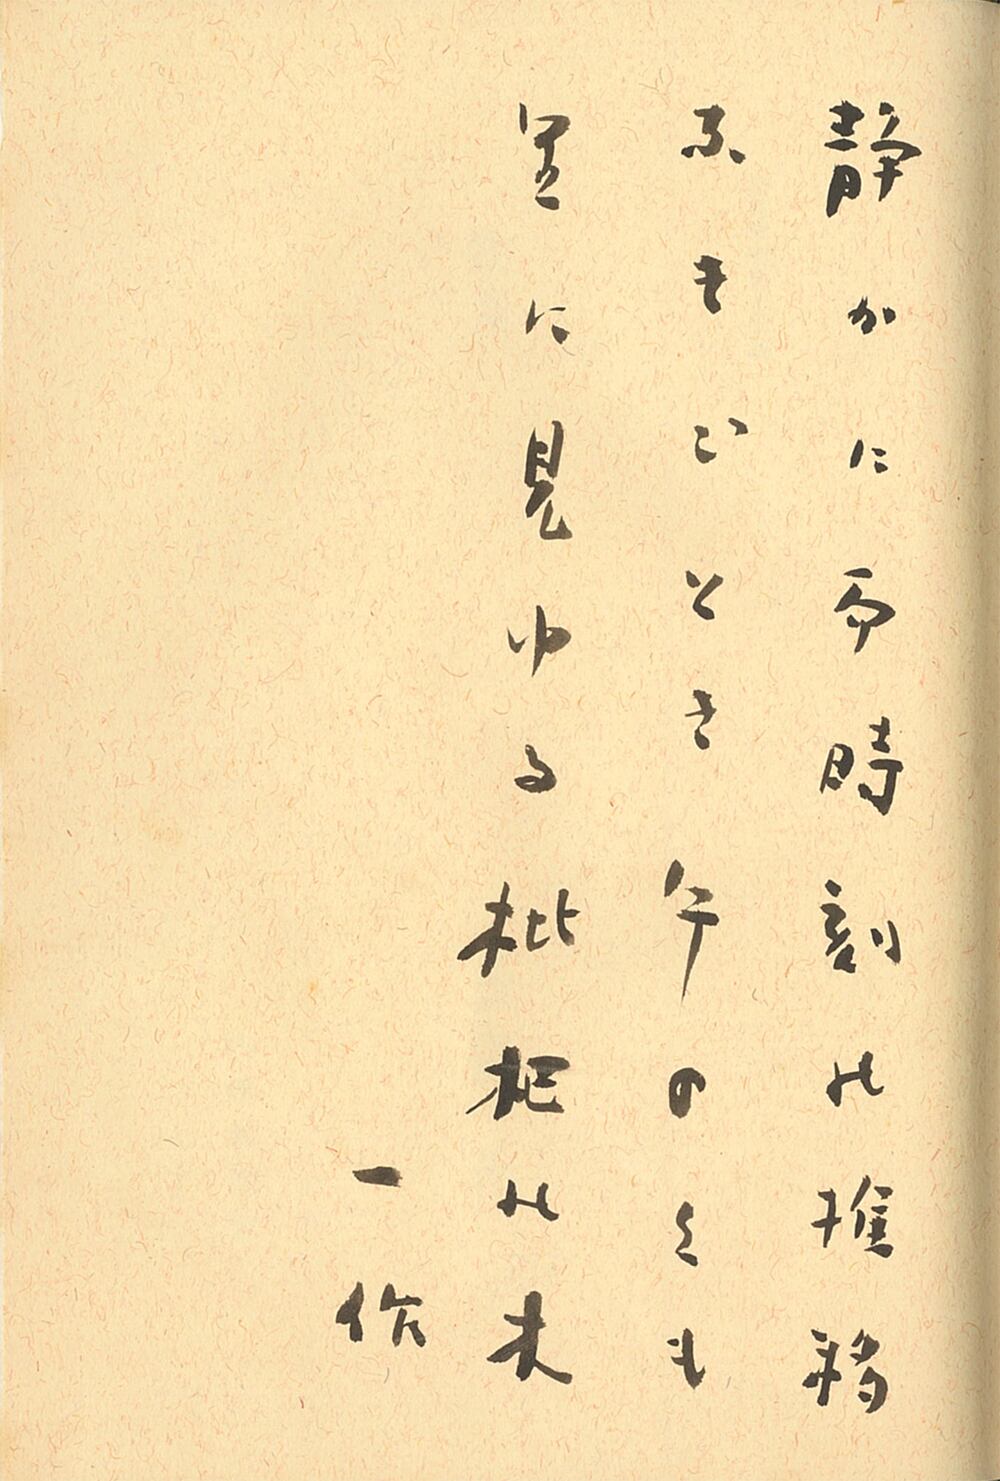 静かに而時刻の推移
なきごとき午のくも
里に見ゆる枇杷の木
一